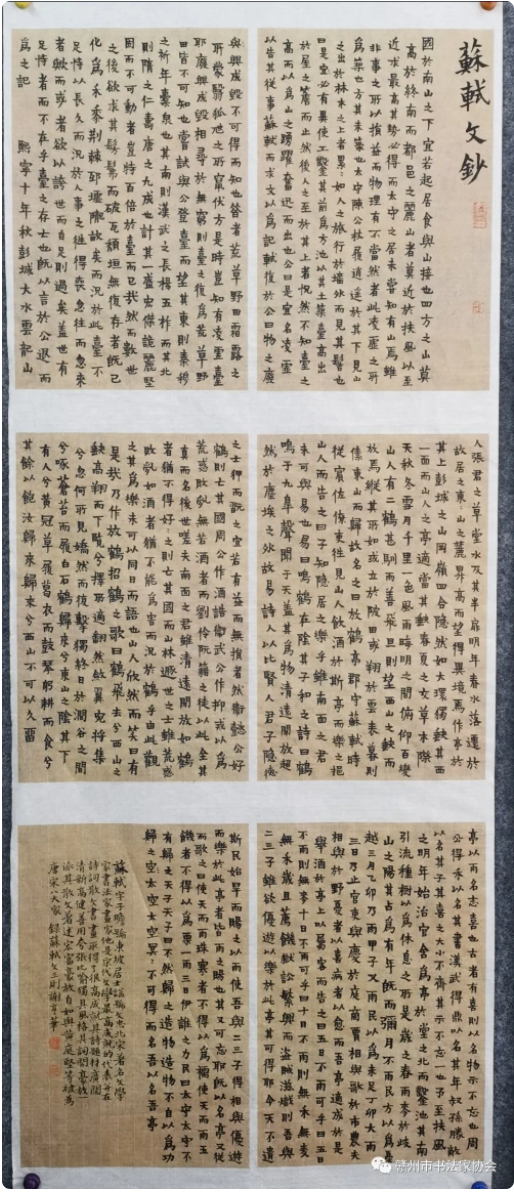 蘇軾文鈔
國於南山之下宜若起居食與山接也四方之山莫
高於終南而都邑之麗山者莫近於扶風以至
近求最高其勢必得而太守之居未嘗知有山焉雖
非事之所以損益而物理有不當然者此凌虛之所
為築也方其未築也太守陳公杖屨逍遙於其下見山
之出於林木之上者累累如人之旅行於墻外而見其髻也
曰是必有異使工鑿其前為方池以其土築臺高出
於屋之簷而止然後人之至於其上者怳然不知臺之
高而以為山之踴躍奮迅而出也公曰是宜名凌虛
以告其從事蘇軾而求文以為記軾復於公曰物之廢
興成毀不可得而知也昔者荒草野田霜露之
所蒙翳狐虺之所竄伏方是時豈知有凌虛臺
耶廢興成毀相尋於無窮則臺之復為荒草野
田皆不可知也嘗試與公登臺而望其東則秦穆
之祈年橐泉也其南則漢武之長楊五柞而其北
則隋之仁壽唐之九成也計其一時之盛宏傑詭麗堅
固而不可動者豈特百倍於臺而已哉然而數世
之後欲求其髣髴而破瓦頹垣無復存者既已
化為禾黍荊棘丘墟隴畝矣而況於此臺不
足恃以長久而況於人事之得喪忽往而忽來
者歟而或者欲以誇世而自足則過矣蓋世有
足恃者而不在乎臺之存亡也既以言於公退而
為之記 熙寧十年秋彭城大水雲龍山
人張君之草堂水及其半扉明年春水落遷於
故居之東東山之麓昇高而望得異境焉作亭於
其上彭城之山岡嶺四合隱然如大環獨缺其西
一面而山人之亭適當其缺春夏之交草木際
天秋冬雪月千里一色風雨晦明之間俯仰百變
山人有二鶴甚馴而善飛旦則望西山之缺而
放焉縱其所如或立於陂田或翔於雲表暮則
傃東山而歸故名之曰放鶴亭郡守蘇軾時
從賓佐僚吏往見山人飲酒於斯亭而樂之挹
山人而告之曰子知隱居之樂乎雖南面之君
未可與易也易曰鳴鶴在陰其子和之詩曰鶴
鳴于九皋聲聞于天蓋其為物清遠閒放超
然於塵埃之外故易詩人以比賢人君子隱德
之士狎而玩之宜若有益而無損者然衛懿公好
鶴則亡其國周公作酒誥衛武公作抑戒以為
荒惑敗亂無若酒者而劉伶阮籍之徒以此全其
真而名後世嗟夫南面之君雖清遠閒放如鶴
者猶不得好好之則亡其國而山林遯世之士雖荒惑
敗亂如酒者猶不能為害而況於鶴乎由此觀
之其為樂未可以同日而語也山人欣然而笑曰有
是哉乃作放鶴招鶴之歌曰鶴飛去兮西山之
缺高翔而下覽兮擇所適翻然斂翼宛將集
兮忽何所見矯然而復擊獨終日於澗谷之間
兮啄蒼苔而履白石鶴歸來兮東山之陰其下
有人兮黃冠草履葛衣而鼓琴躬耕而食兮
其餘以飽汝歸來歸來兮西山不可以久留
亭以雨名志喜也古者有喜則以名物示不忘也周
公得禾以名其書漢武得鼎以名其年叔孫勝敵
以名其子其喜之大小不齊其示不忘一也予至扶風
之明年始治官舍為亭於堂之北而鑿池其南
引流種樹以為休息之所是歲之春雨麥於岐
山之陽其占為有年既而彌月不雨民方以為憂
越三月乙卯乃雨甲子又雨民以為未足丁卯大雨
三日乃止官吏相與慶於庭商賈相與歌於市農夫
相與忭於野憂者以喜病者以愈而吾亭適成於是
舉酒於亭上以屬客而告之曰五日不雨可乎曰五日
不雨則無麥十日不雨可乎曰十日不雨則無禾無麥
無禾歲且薦饑獄訟繁興而盜賊滋熾則吾與
二三子雖欲優游以樂於此亭其可得耶今天不遺
斯民始旱而賜之以雨使吾與二三子得相與優遊
而樂於此亭者皆雨之賜也其又可忘耶既以名亭又從
而歌之曰使天而雨珠寒者不得以為襦使天而雨玉
饑者不得以為粟一雨三日伊誰之力民曰太守太守不
有歸之天子天子曰不然歸之造物造物不自以為功
歸之太空太空冥冥不可得而名吾以名吾亭
蘇軾字子瞻號東坡居士謚號文忠北宋著名文學
家書法家畫家他是宋代文學最高成就的代表並在
詩詞散文書畫取得了很高成就其詩題材廣闊
清新高健善用夸張比喻獨具風格其詞開豪放
派其散文著述宏富豪放自如與黃庭堅等被為
唐宋八大家 錄蘇軾文三則謝
贛州市书法家协会